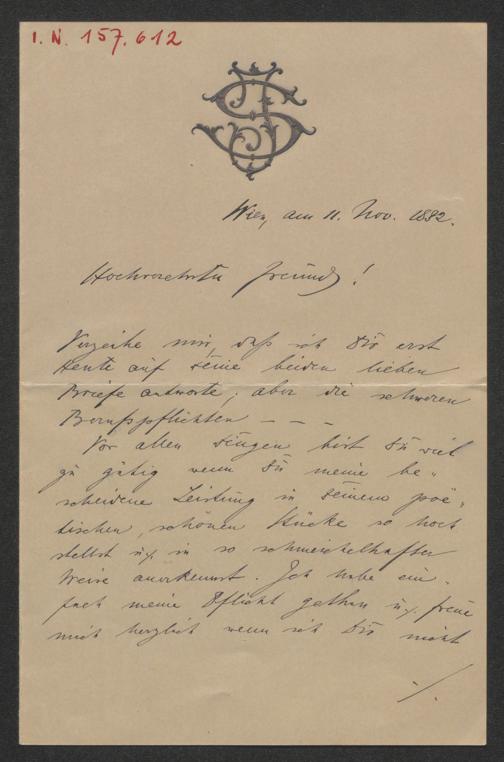 I. N. 157.612
Wien, am 11. Nov. 1892.
Hochverehrter Freund!
Verzeihe mir, daß ich Dir erst
heute auf Deine beiden lieben
Briefe antworte; aber die schweren
Berufspflichten – – –
Vor allen Dingen bist Du viel
zu gütig wenn Du meine be-
scheidene Leistung in Deinem poë-
tischen, schönen Stücke so hoch
stellst u. in so schmeichelhafter
Weise anerkennst. Ich habe ein-
fach meine Pflicht gethan u. freue
mich herzlich wenn ich Dir nicht
./.